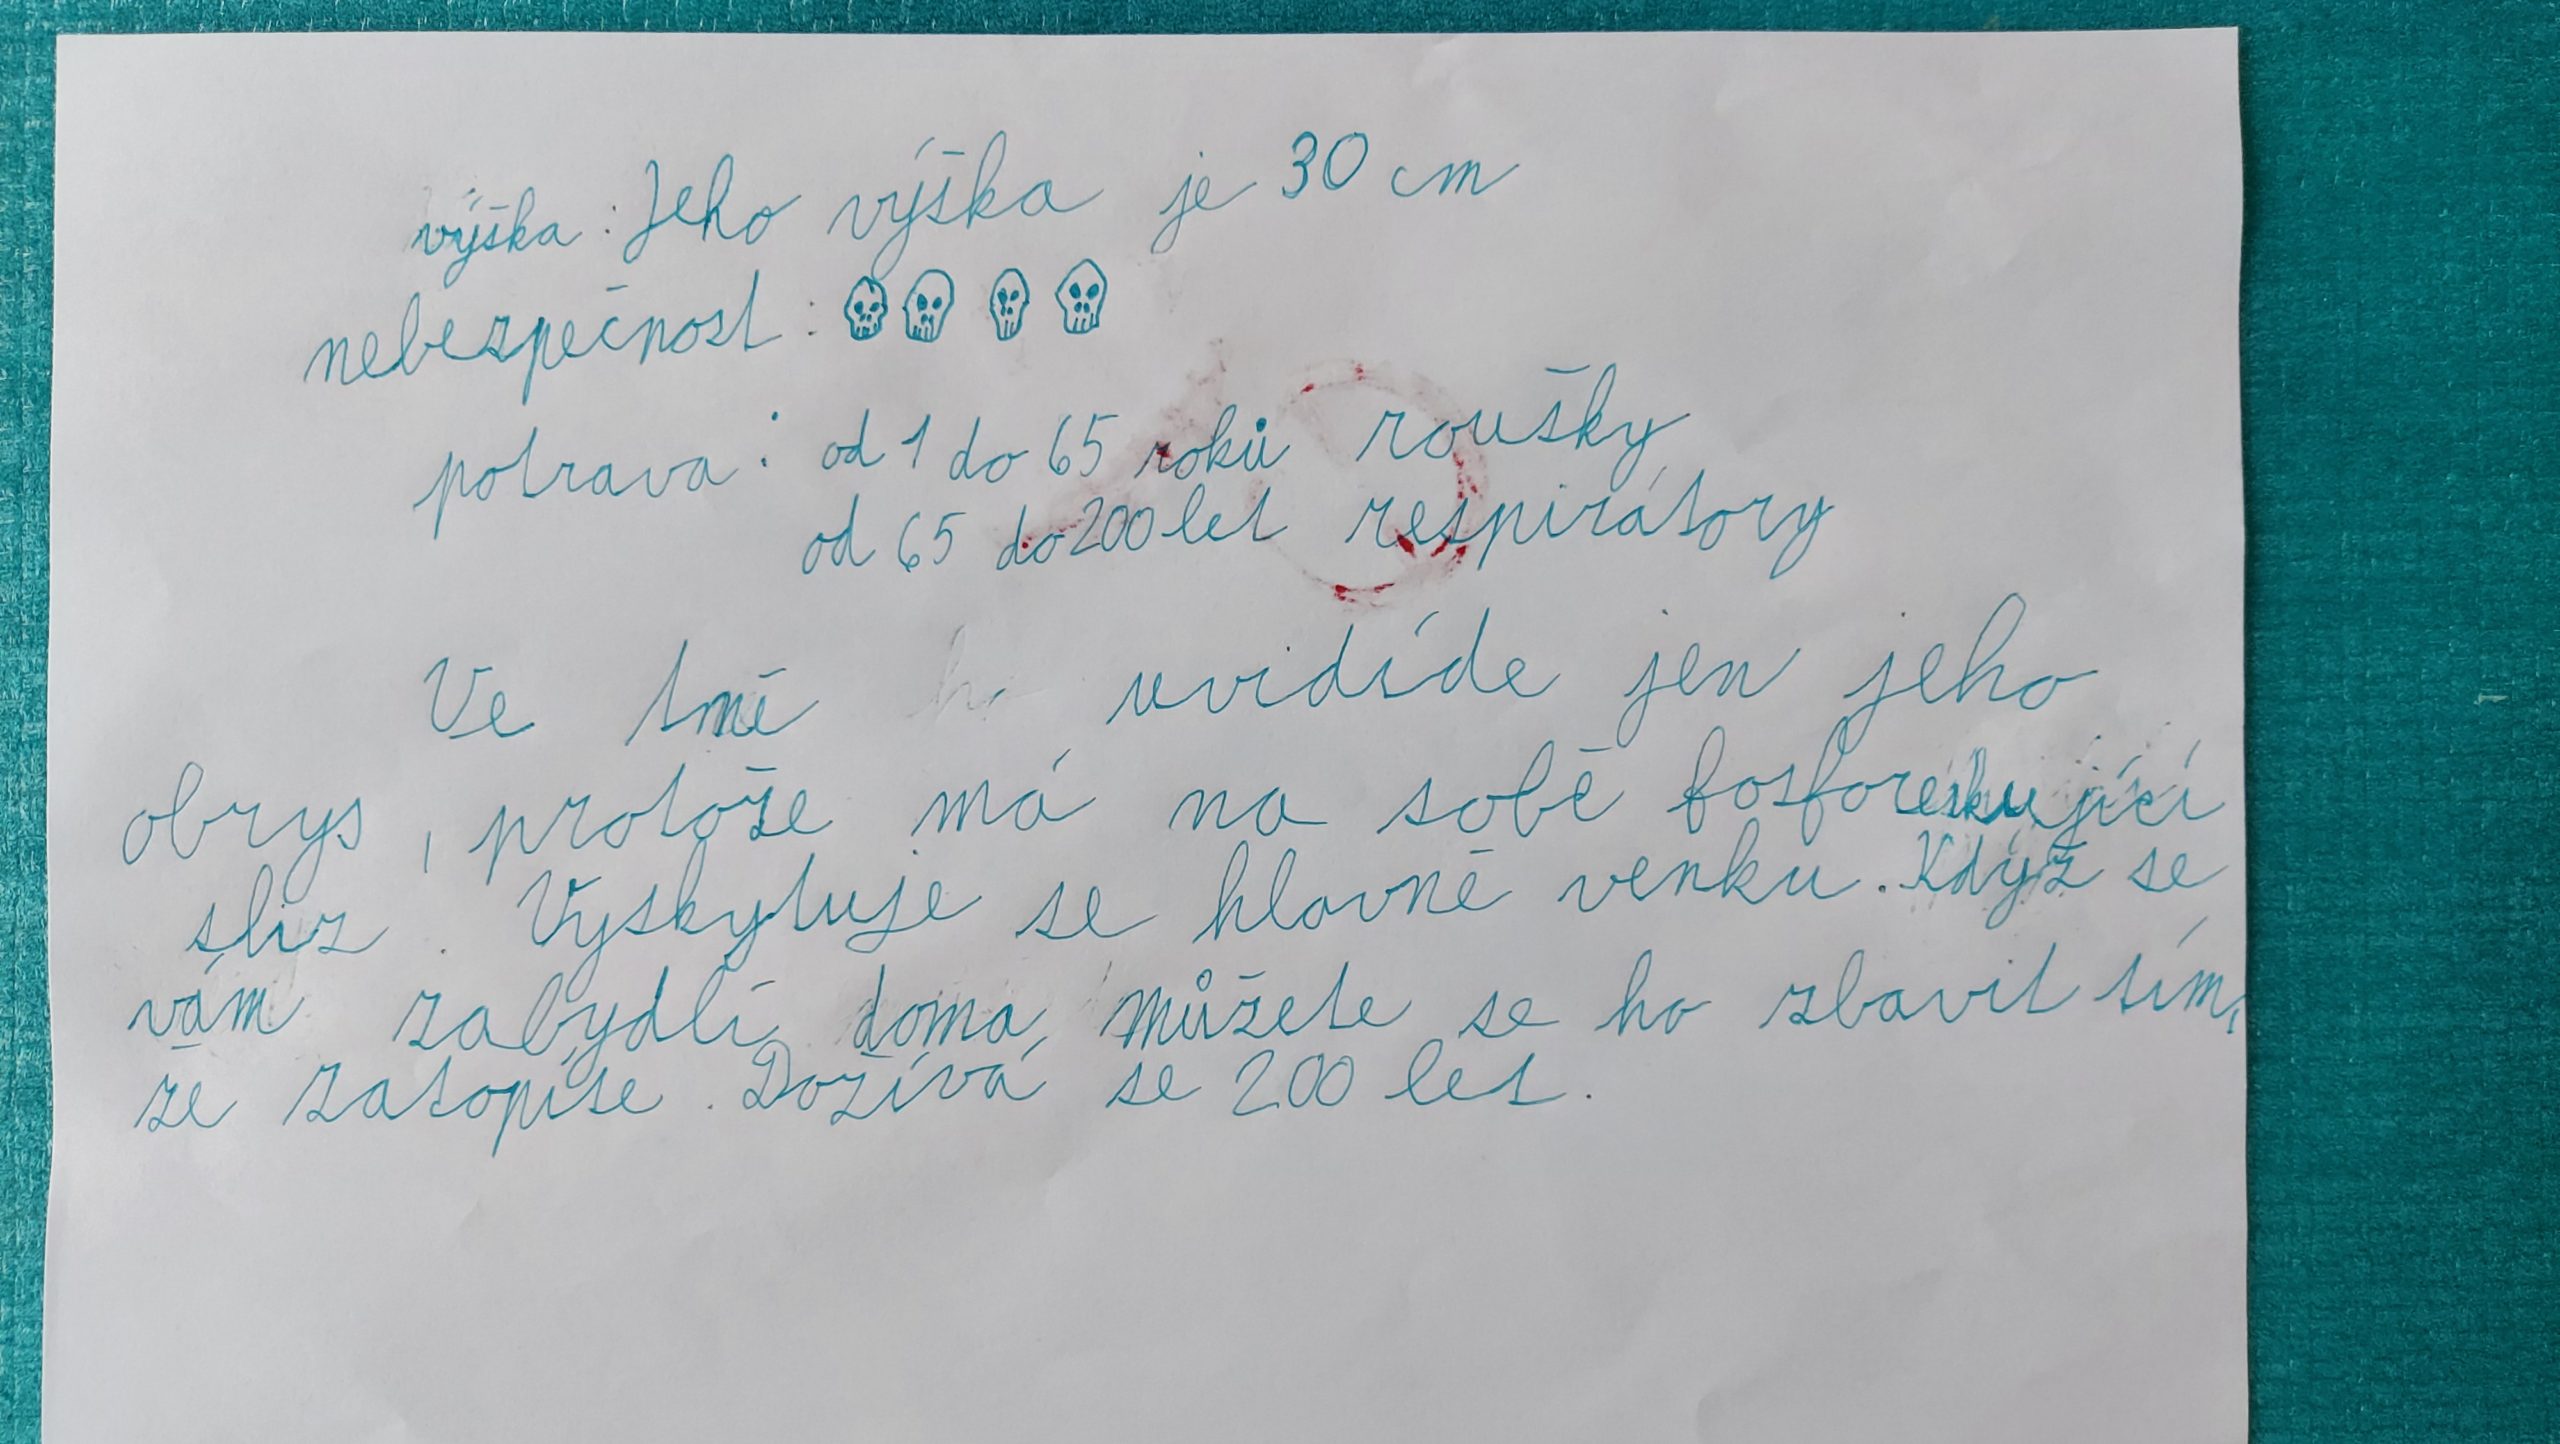 výška: Jeho výška je 30 cm
nebezpečnost:
potrava: od 1 do 65 roků roušky
od 65 do 200 let respirátory
Ve tmě uvidíde jen jeho
obrys, protože má na sobě fosforeskující
sliz. Vyskytuje se hlavně venku. Když se
vám zabydlí doma, můžete se ho zbavit tím,
že zatopíte. Dožívá se 200 let.